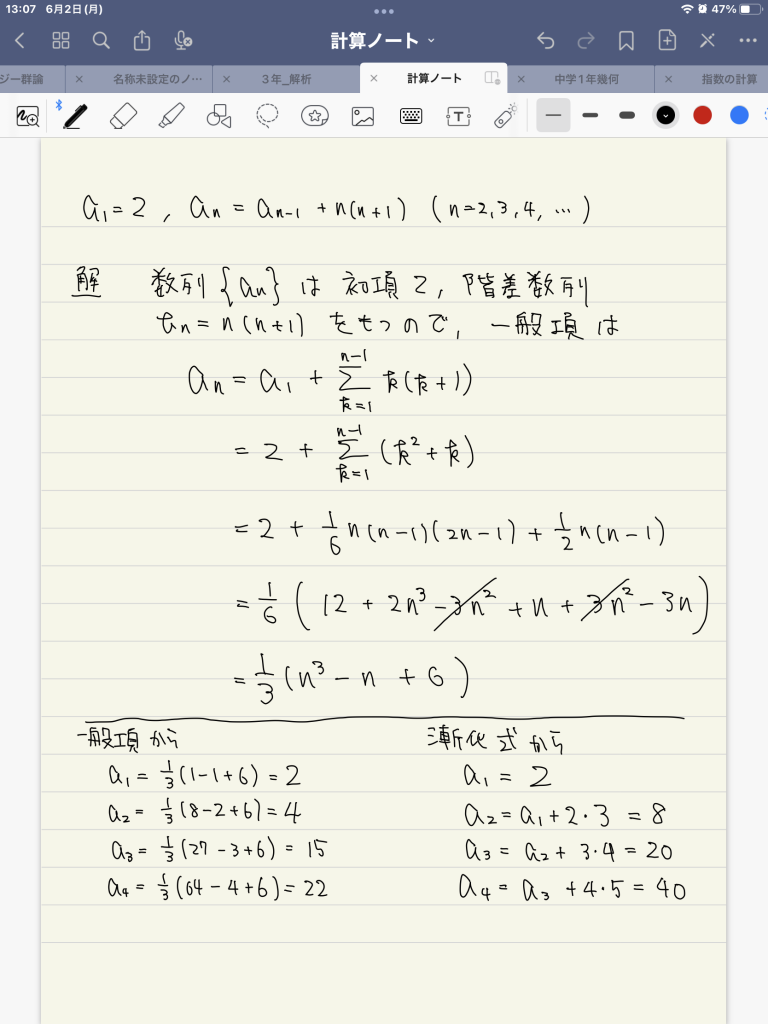 13:07 6月2日(月) 47%
計算ノート
ジー群論 名称未設定のノ… 3年_解析 計算ノート 中学1年幾何 指数の計算
a₁=2 , aₙ = aₙ₋₁ + n(n+1) (n=2,3,4, …)
解 数列{aₙ}は初項2, 階差数列
bₙ=n(n+1) をもつので, 一般項は
aₙ = a₁ + Σ_{k=1}^{n-1} k(k+1)
= 2 + Σ_{k=1}^{n-1} (k²+k)
= 2 + 1/6 n(n-1)(2n-1) + 1/2 n(n-1)
= 1/6 (12 + 2n³ - 3n² + n + 3n² - 3n)
= 1/3 (n³ - n + 6)
一般項から
a₁ = 1/3 (1-1+6) = 2
a₂ = 1/3 (8-2+6) = 4
a₃ = 1/3 (27-3+6) = 15
a₄ = 1/3 (64-4+6) = 22
漸化式から
a₁ = 2
a₂ = a₁+2・3 = 8
a₃ = a₂ + 3・4 = 20
a₄ = a₃ + 4・5 = 40